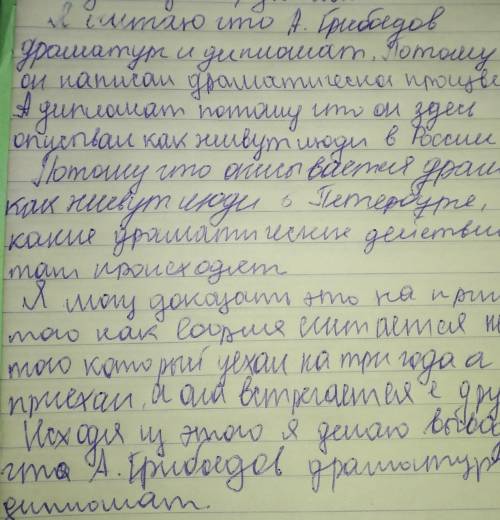 Я считаю что А. Грибоедов
драматург и дипломат. Потому
он написал драматическое произве
А дипломат потому что он здесь
описывал как живут люди в России
Потому что описывается драм
как живут люди в Петербурге,
какие драматические действия
там происходят
Я могу доказать это на при
того как София считается не
того который уехал на три года а
приехал, а она встречается с дру
Исходя из этого я делаю вывод
что А. Грибоедов драматург и
дипломат.